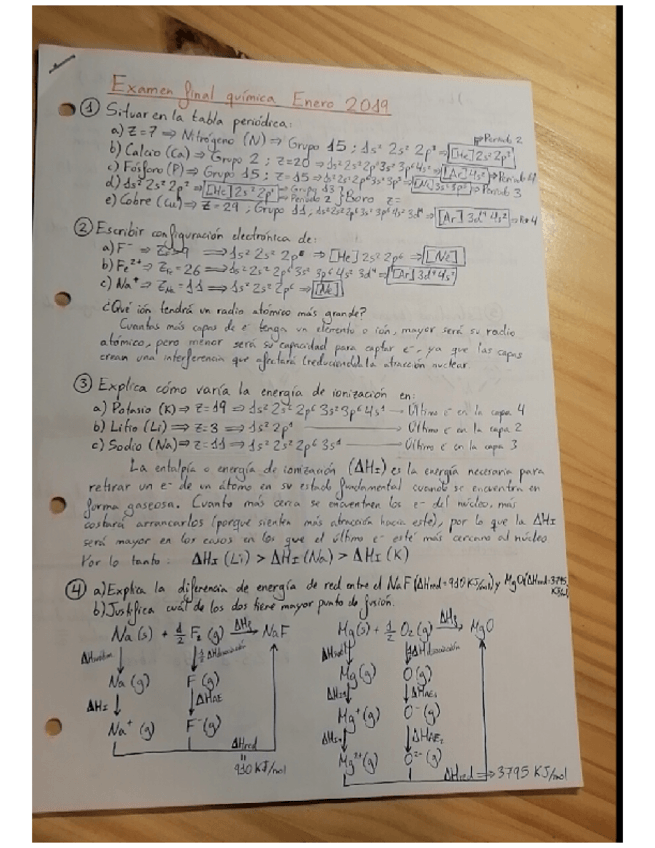 Examen final química Enero 2019
① Situar en la tabla periódica:
a) Z=7 ⇒ Nitrógeno (N) ⇒ Grupo 15; 1s² 2s² 2p³ ⇒ [He] 2s² 2p³ ⇒ Periodo 2
b) Calcio (Ca) ⇒ Grupo 2; Z=20 ⇒ 1s² 2s² 2p⁶ 3s² 3p⁶ 4s² ⇒ [Ar] 4s² ⇒ Periodo 4
c) Fósforo (P) ⇒ Grupo 15; Z=15 ⇒ 1s² 2s² 2p⁶ 3s² 3p³ ⇒ [Ne] 3s² 3p³ ⇒ Periodo 3
d) 1s² 2s² 2p¹ ⇒ [He] 2s² 2p¹ ⇒ Grupo 13 ⇒ Periodo 2 } Boro Z=
e) Cobre (Cu) ⇒ Z=29; Grupo 11; 1s² 2s² 2p⁶ 3s² 3p⁶ 4s² 3d⁹ ⇒ [Ar] 3d⁹ 4s² ⇒ 4
② Escribir configuración electrónica de:
a) F⁻ ⇒ 9 ⇒ 1s² 2s² 2p⁶ ⇒ [He] 2s² 2p⁶ ⇒ [Ne]
b) Fe²⁺ ⇒ Z = 26 ⇒ 1s² 2s² 2p⁶ 3s² 3p⁶ 4s² 3d⁴ ⇒ [Ar] 3d⁴ 4s²
c) Na⁺ ⇒ Z = 11 ⇒ 1s² 2s² 2p⁶ ⇒ [Ne]
¿Qué ión tendrá un radio atómico más grande?
Cuantas más capas de e⁻ tenga un elemento o ión, mayor será su radio
atómico, pero menor será su capacidad para captar e⁻, ya que las capas
crean una interferencia que afectará (reduciendo) la atracción nuclear.
③ Explica cómo varía la energía de ionización en:
a) Potasio (K) ⇒ Z=19 ⇒ 1s² 2s² 2p⁶ 3s² 3p⁶ 4s¹ → Último e⁻ en la capa 4
b) Litio (Li) ⇒ Z=3 ⇒ 1s² 2p¹ → Último e⁻ en la capa 2
c) Sodio (Na) ⇒ Z=11 ⇒ 1s² 2s² 2p⁶ 3s¹ → Último e⁻ en la capa 3
La entalpía o energía de ionización (ΔHI) es la energía necesaria para
retirar un e⁻ de un átomo en su estado fundamental cuando se encuentra en
forma gaseosa. Cuanto más cerca se encuentren los e⁻ del núcleo, más
costará arrancarlos (porque sienten más atracción hacia este), por lo que la ΔHI
será mayor en los casos en los que el último e⁻ esté más cercano al núcleo
Por lo tanto: ΔHI (Li) > ΔHI (Na) > ΔHI (K)
④ a) Explica la diferencia de energía de red entre el NaF (ΔHred=930 KJ/mol) y MgO (ΔHred=3795 KJ/mol)
b) Justifica cuál de los dos tiene mayor punto de fusión.
Na(s) + ½ F₂(g) → ΔHf NaF Mg(s) + ½ O₂(g) → ΔHf MgO
½ ΔH disociación ΔH disociación
Na(g) F(g) Mg(g) O(g)
ΔHI ΔHAE ΔHI₁ ΔHAE₁
Na⁺(g) F⁻(g) Mg⁺(g) O⁻(g)
ΔHI₂ ΔHAE₂
ΔHred Mg²⁺(g) O²⁻(g)
930 KJ/mol ΔHred ⇒ 3795 KJ/mol